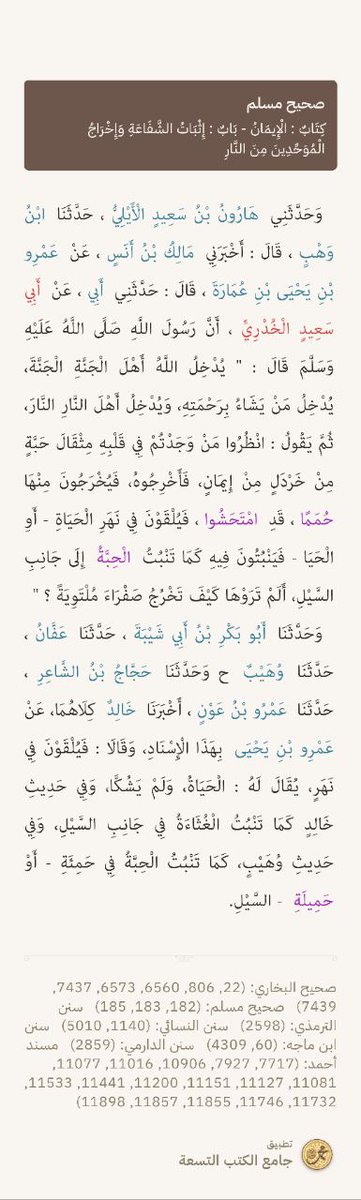 صحيح مسلم
كِتَابٌ : الْإِيمَانُ - بَابٌ : إِثْبَاتُ الشَّفَاعَةِ وَإِخْرَاجُ
الْمُوَحِّدِينَ مِنَ النَّارِ
وَحَدَّثَنِي هَارُونُ بْنُ سَعِيدٍ الْأَيْلِيُّ ، حَدَّثَنَا ابْنُ
وَهْبٍ ، قَالَ : أَخْبَرَنِي مَالِكُ بْنُ أَنَسٍ ، عَنْ عَمْرِو
بْنِ يَحْيَى بْنِ عُمَارَةَ ، قَالَ : حَدَّثَنِي أَبِي ، عَنْ أَبِي
سَعِيدٍ الْخُدْرِيِّ ، أَنَّ رَسُولَ اللَّهِ صَلَّى اللَّهُ عَلَيْهِ
وَسَلَّمَ قَالَ : " يُدْخِلُ اللَّهُ أَهْلَ الْجَنَّةِ الْجَنَّةَ،
يُدْخِلُ مَنْ يَشَاءُ بِرَحْمَتِهِ، وَيُدْخِلُ أَهْلَ النَّارِ النَّارَ،
ثُمَّ يَقُولُ : انْظُرُوا مَنْ وَجَدْتُمْ فِي قَلْبِهِ مِثْقَالَ حَبَّةٍ
مِنْ خَرْدَلٍ مِنْ إِيمَانٍ، فَأَخْرِجُوهُ، فَيُخْرَجُونَ مِنْهَا
حُمَمًا ، قَدِ امْتَحَشُوا ، فَيُلْقَوْنَ فِي نَهَرِ الْحَيَاةِ - أَوِ
الْحَيَا - فَيَنْبُتُونَ فِيهِ كَمَا تَنْبُتُ الْحِبَّةُ إِلَى جَانِبِ
السَّيْلِ، أَلَمْ تَرَوْهَا كَيْفَ تَخْرُجُ صَفْرَاءَ مُلْتَوِيَةً ؟ "
وَحَدَّثَنَا أَبُو بَكْرِ بْنُ أَبِي شَيْبَةَ ، حَدَّثَنَا عَفَّانُ ،
حَدَّثَنَا وُهَيْبٌ ح وَحَدَّثَنَا حَجَّاجُ بْنُ الشَّاعِرِ ،
حَدَّثَنَا عَمْرُو بْنُ عَوْنٍ ، أَخْبَرَنَا خَالِدٌ كِلَاهُمَا، عَنْ
عَمْرِو بْنِ يَحْيَى بِهَذَا الْإِسْنَادِ، وَقَالَا : فَيُلْقَوْنَ فِي
نَهَرٍ، يُقَالُ لَهُ : الْحَيَاةُ، وَلَمْ يَشُكَّا، وَفِي حَدِيثِ
خَالِدٍ كَمَا تَنْبُتُ الْغُثَاءَةُ فِي جَانِبِ السَّيْلِ، وَفِي
حَدِيثِ وُهَيْبٍ، كَمَا تَنْبُتُ الْحِبَّةُ فِي حَمِئَةٍ - أَوْ
حَمِيلَةِ - السَّيْلِ.
صحيح البخاري: (22, 806, 6560, 6573, 7437,
7439) صحيح مسلم: (182, 183, 185) سنن
الترمذي: (2598) سنن النسائي: (1140, 5010) سنن
ابن ماجه: (60, 4309) سنن الدارمي: (2859) مسند
أحمد: (7717, 7927, 10906, 11016, 11077,
11081, 11127, 11151, 11200, 11441, 11533,
11732, 11746, 11855, 11857, 11898)
تطبيق
جامع الكتب التسعة